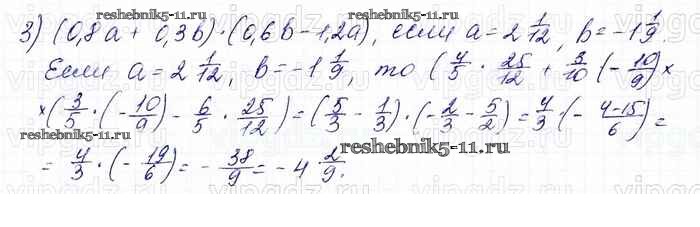 reshebnik5-11.ru
3) (0,8a + 0,3b)·(0,6b - 1,2a), если a = 2 1/12, b = -1 1/9.
Если a = 2 1/12, b = -1 1/9, то (4/5 · 25/12 + 3/10 (-10/9) ×
× (3/5 · (-10/9) - 6/5 · 25/12) = (5/3 - 1/3) · (-2/3 - 5/2) = 4/3 · (- 4-15/6) =
reshebnik5-11.ru
= 4/3 · (- 19/6) = - 38/9 = -4 2/9.